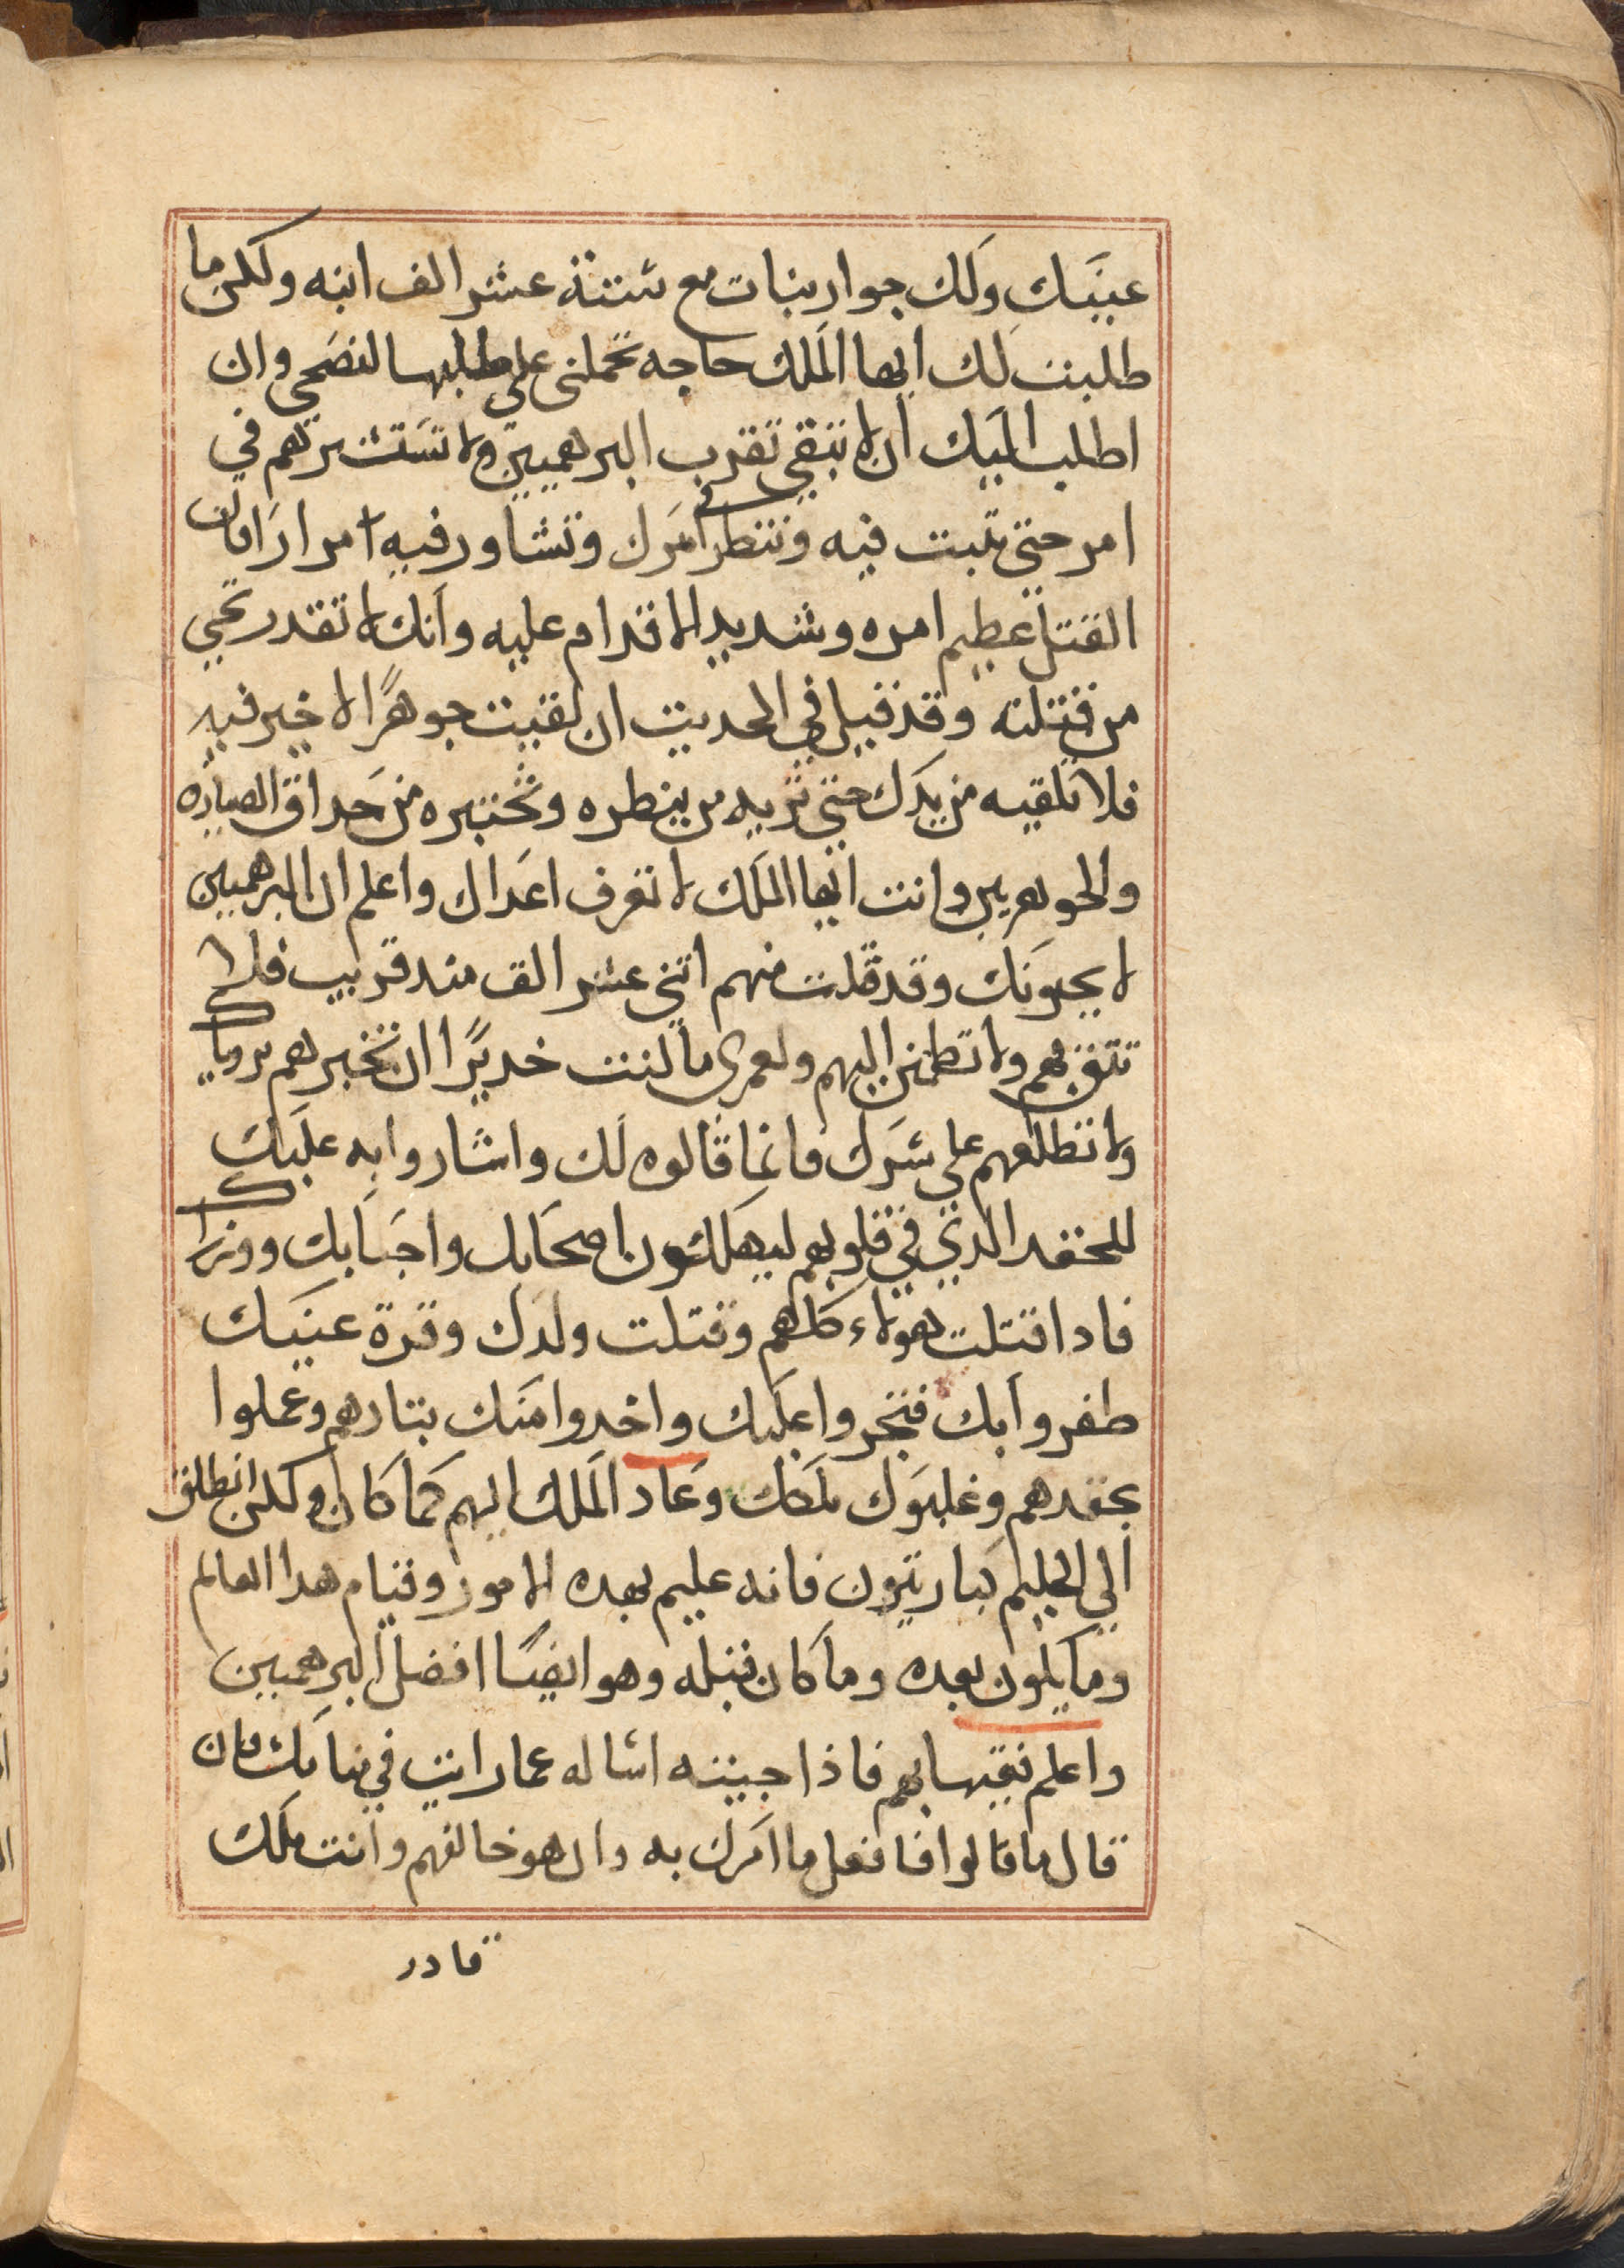 عينيك ولك جوار بنات مع ستة عشر الف ابنه ولكن ما
طلبت لك ايها الملك حاجه تحملنى على طلبها لنصحى وان
اطلب اليك ان لا تبقى تقرب البرهميين ولا تستشيرهم في
امر حتى تثبت فيه وتنظر في امرك وتشاور فيه امرارا فان
القتل عظيم امره وشديد الاقدام عليه وانك لا تقدر تحي
من قتلته وقد قيل في الحديث ان لقيت جوهرًا لا خير فيه
فلا تلقيه من يدك حتى تريه من ينظره وتختبره من حداق الصيارة
والجوهريين وانت ايها الملك لا تعرف اعداك واعلم ان البرهميين
لا يحبونك وقد قتلت منهم اثني عشر الف مند قريب فلا
تتق بهم ولا تطمئن اليهم ولعمرى ما كنت خديرًا ان تخبرهم بروياك
ولا تطلعهم على سرك فانما قالوه لك واشاروا به عليك
للحقد الدي في قلوبهم ليهلكون اصحابك واحبابك ووزراك
فادا قتلت هولاء كلهم وقتلت ولدك وقرة عينيك
ظفروا بك فتجروا عليك واخدوا منك بتارهم وعملوا
بحقدهم وغلبوك ملكك وعاد الملك اليهم كما كان ولكن انطلق
الي الحليم كباريترون فانه عليم بهده الامور وقيام هدا العالم
وما يكون بعده وما كان قبله وهو ايضًا افضل البرهميين
واعلم فقيهابهم فاذا جيته اساله عما رايت في منامك فان
قال ما قالوا فافعل ما امرك به وان هو خالفهم وانت ملك
قادر